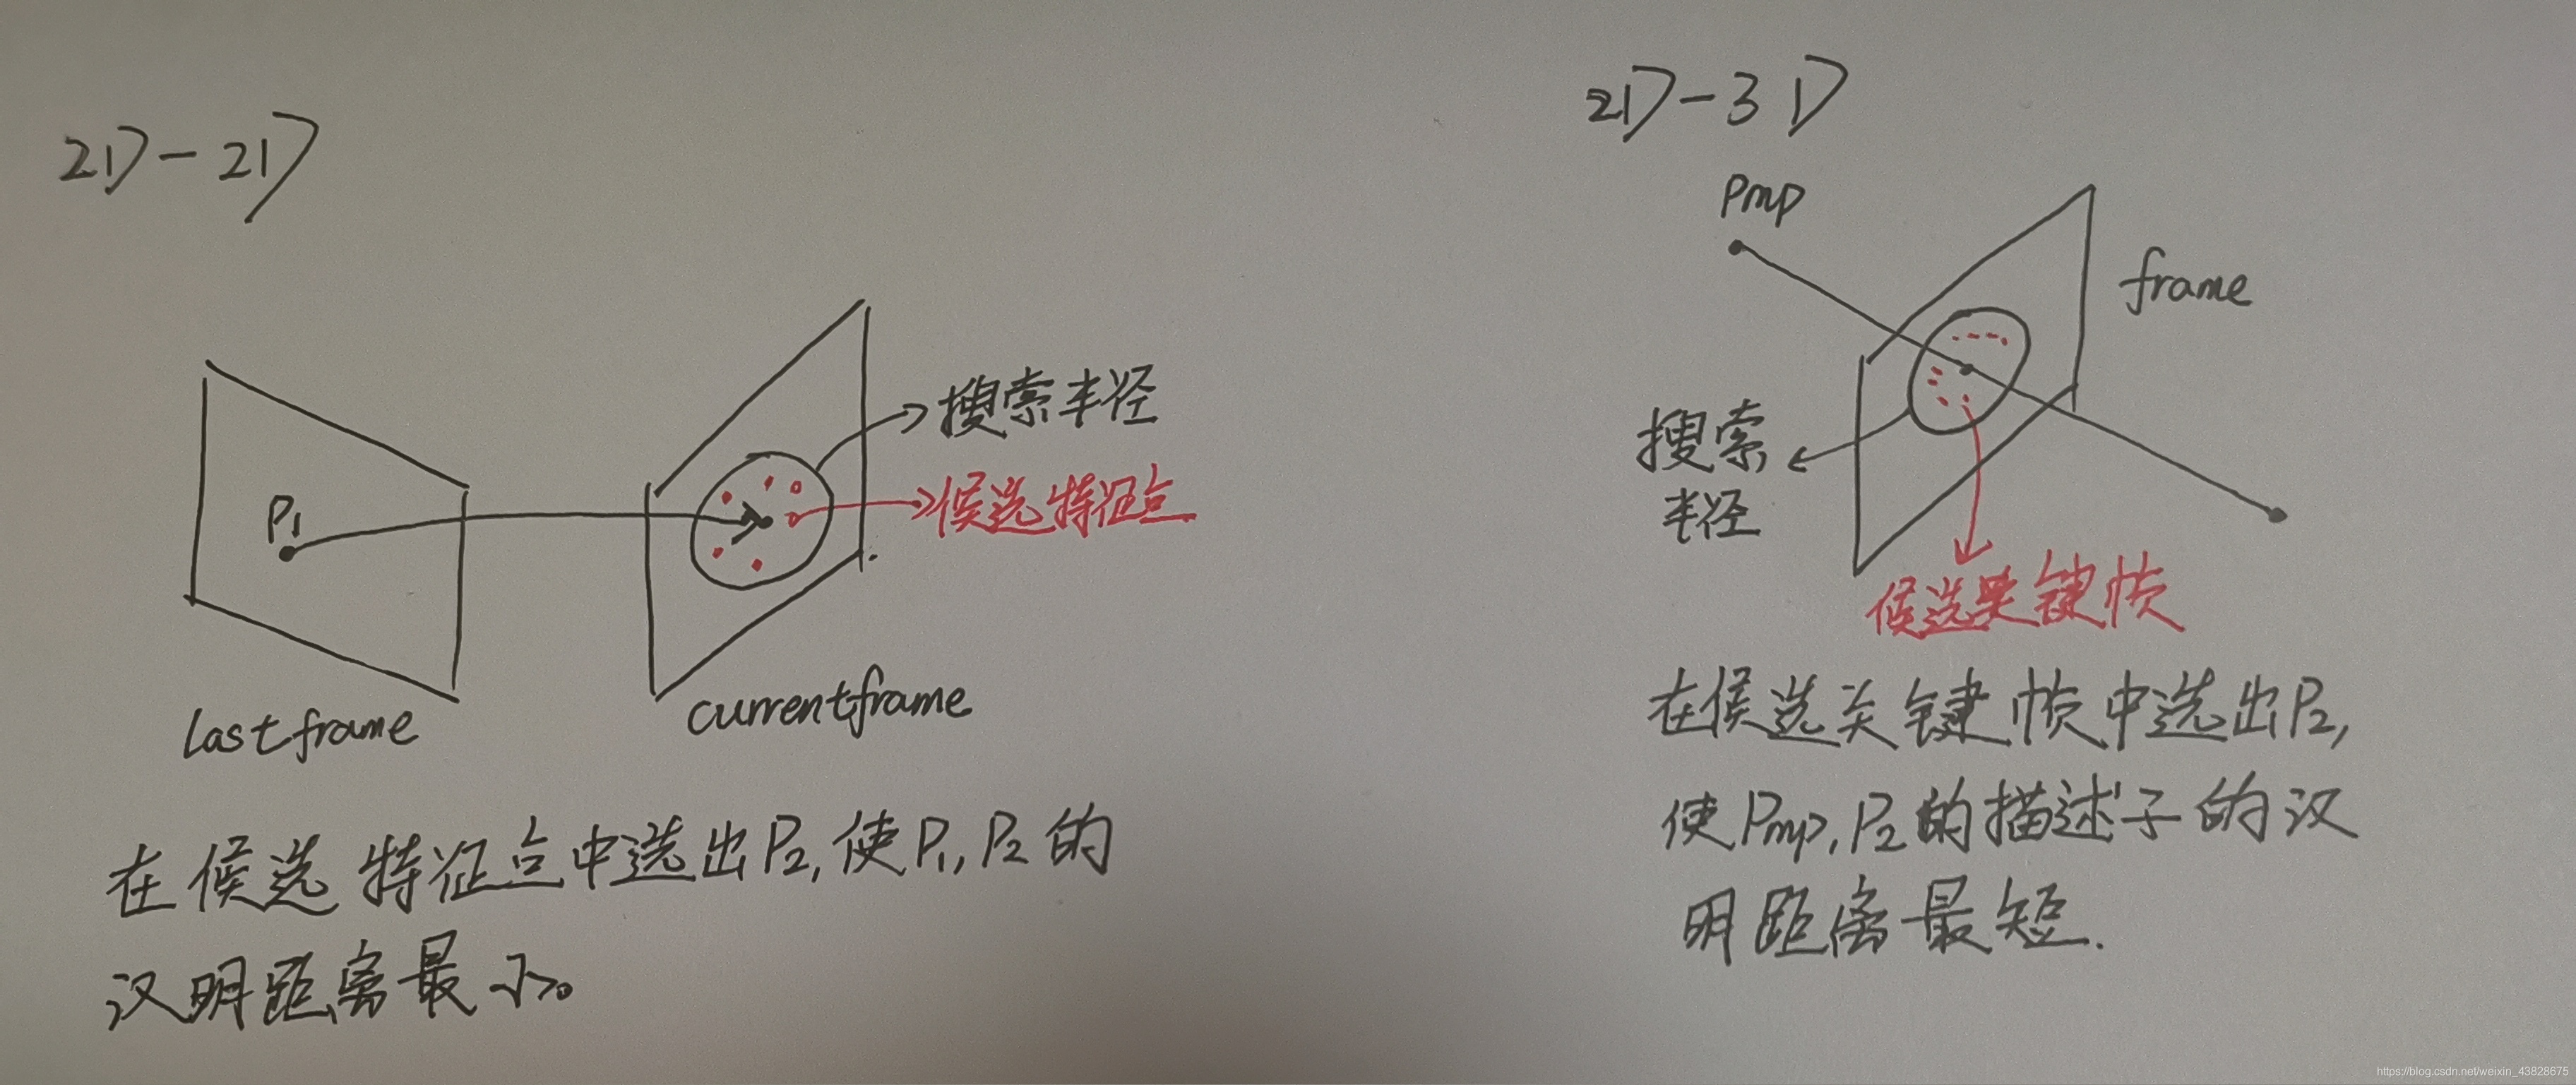 2D-2D
P1
搜索半径
候选特征点
lastframe
currentframe
在候选特征点中选出P2,使P1,P2的
汉明距离最小。
2D-3D
Pmp
frame
搜索
半径
候选关键帧
在候选关键帧中选出P2,
使Pmp,P2的描述子的汉
明距离最短.
https://blog.csdn.net/weixin_43828675